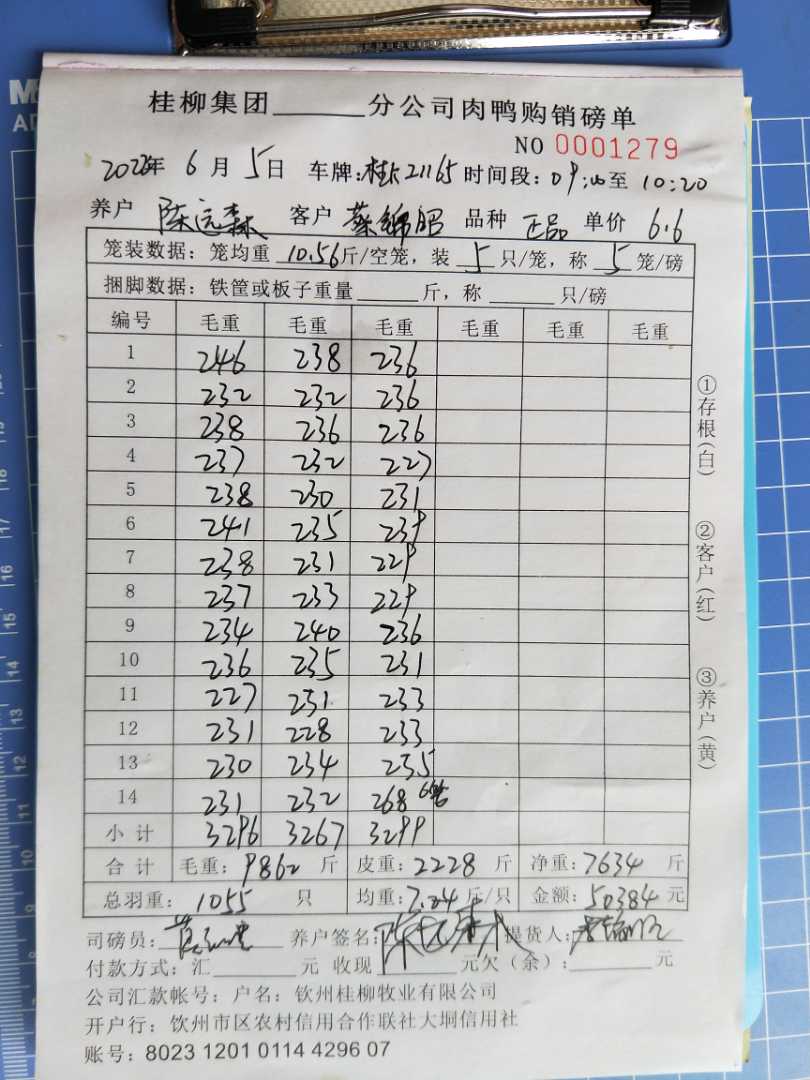 桂柳集团______分公司肉鸭购销磅单
NO 0001279
2022年 6月 5日 车牌:桂K21165 时间段:09:00至 10:20
养户 陈远森 客户 蔡锦昭 品种 正品 单价 6.6
笼装数据:笼均重 10.56斤/空笼,装 5 只/笼,称 5 笼/磅
捆脚数据:铁筐或板子重量______斤,称______只/磅
编号 毛重 毛重 毛重 毛重 毛重 毛重
1 246 238 236
2 232 232 236
3 238 236 236
4 237 232 227
5 238 230 231
6 241 235 239
7 238 231 229
8 237 233 229
9 234 240 236
10 236 235 231
11 227 231 233
12 231 228 233
13 230 234 235
14 231 232 268 6笼
小计 3296 3267 3299
合计 毛重:9862 斤 皮重:2228 斤 净重:7634 斤
总羽重: 1055 只 均重:7.24斤/只 金额:50384元
司磅员: 养户签名: 提货人:
付款方式:汇______元 收现______元欠(余):______元
公司汇款帐号:户名:钦州桂柳牧业有限公司
开户行:钦州市区农村信用合作联社大垌信用社
账号:8023 1201 0114 4296 07
①存根(白)
②客户(红)
③养户(黄)